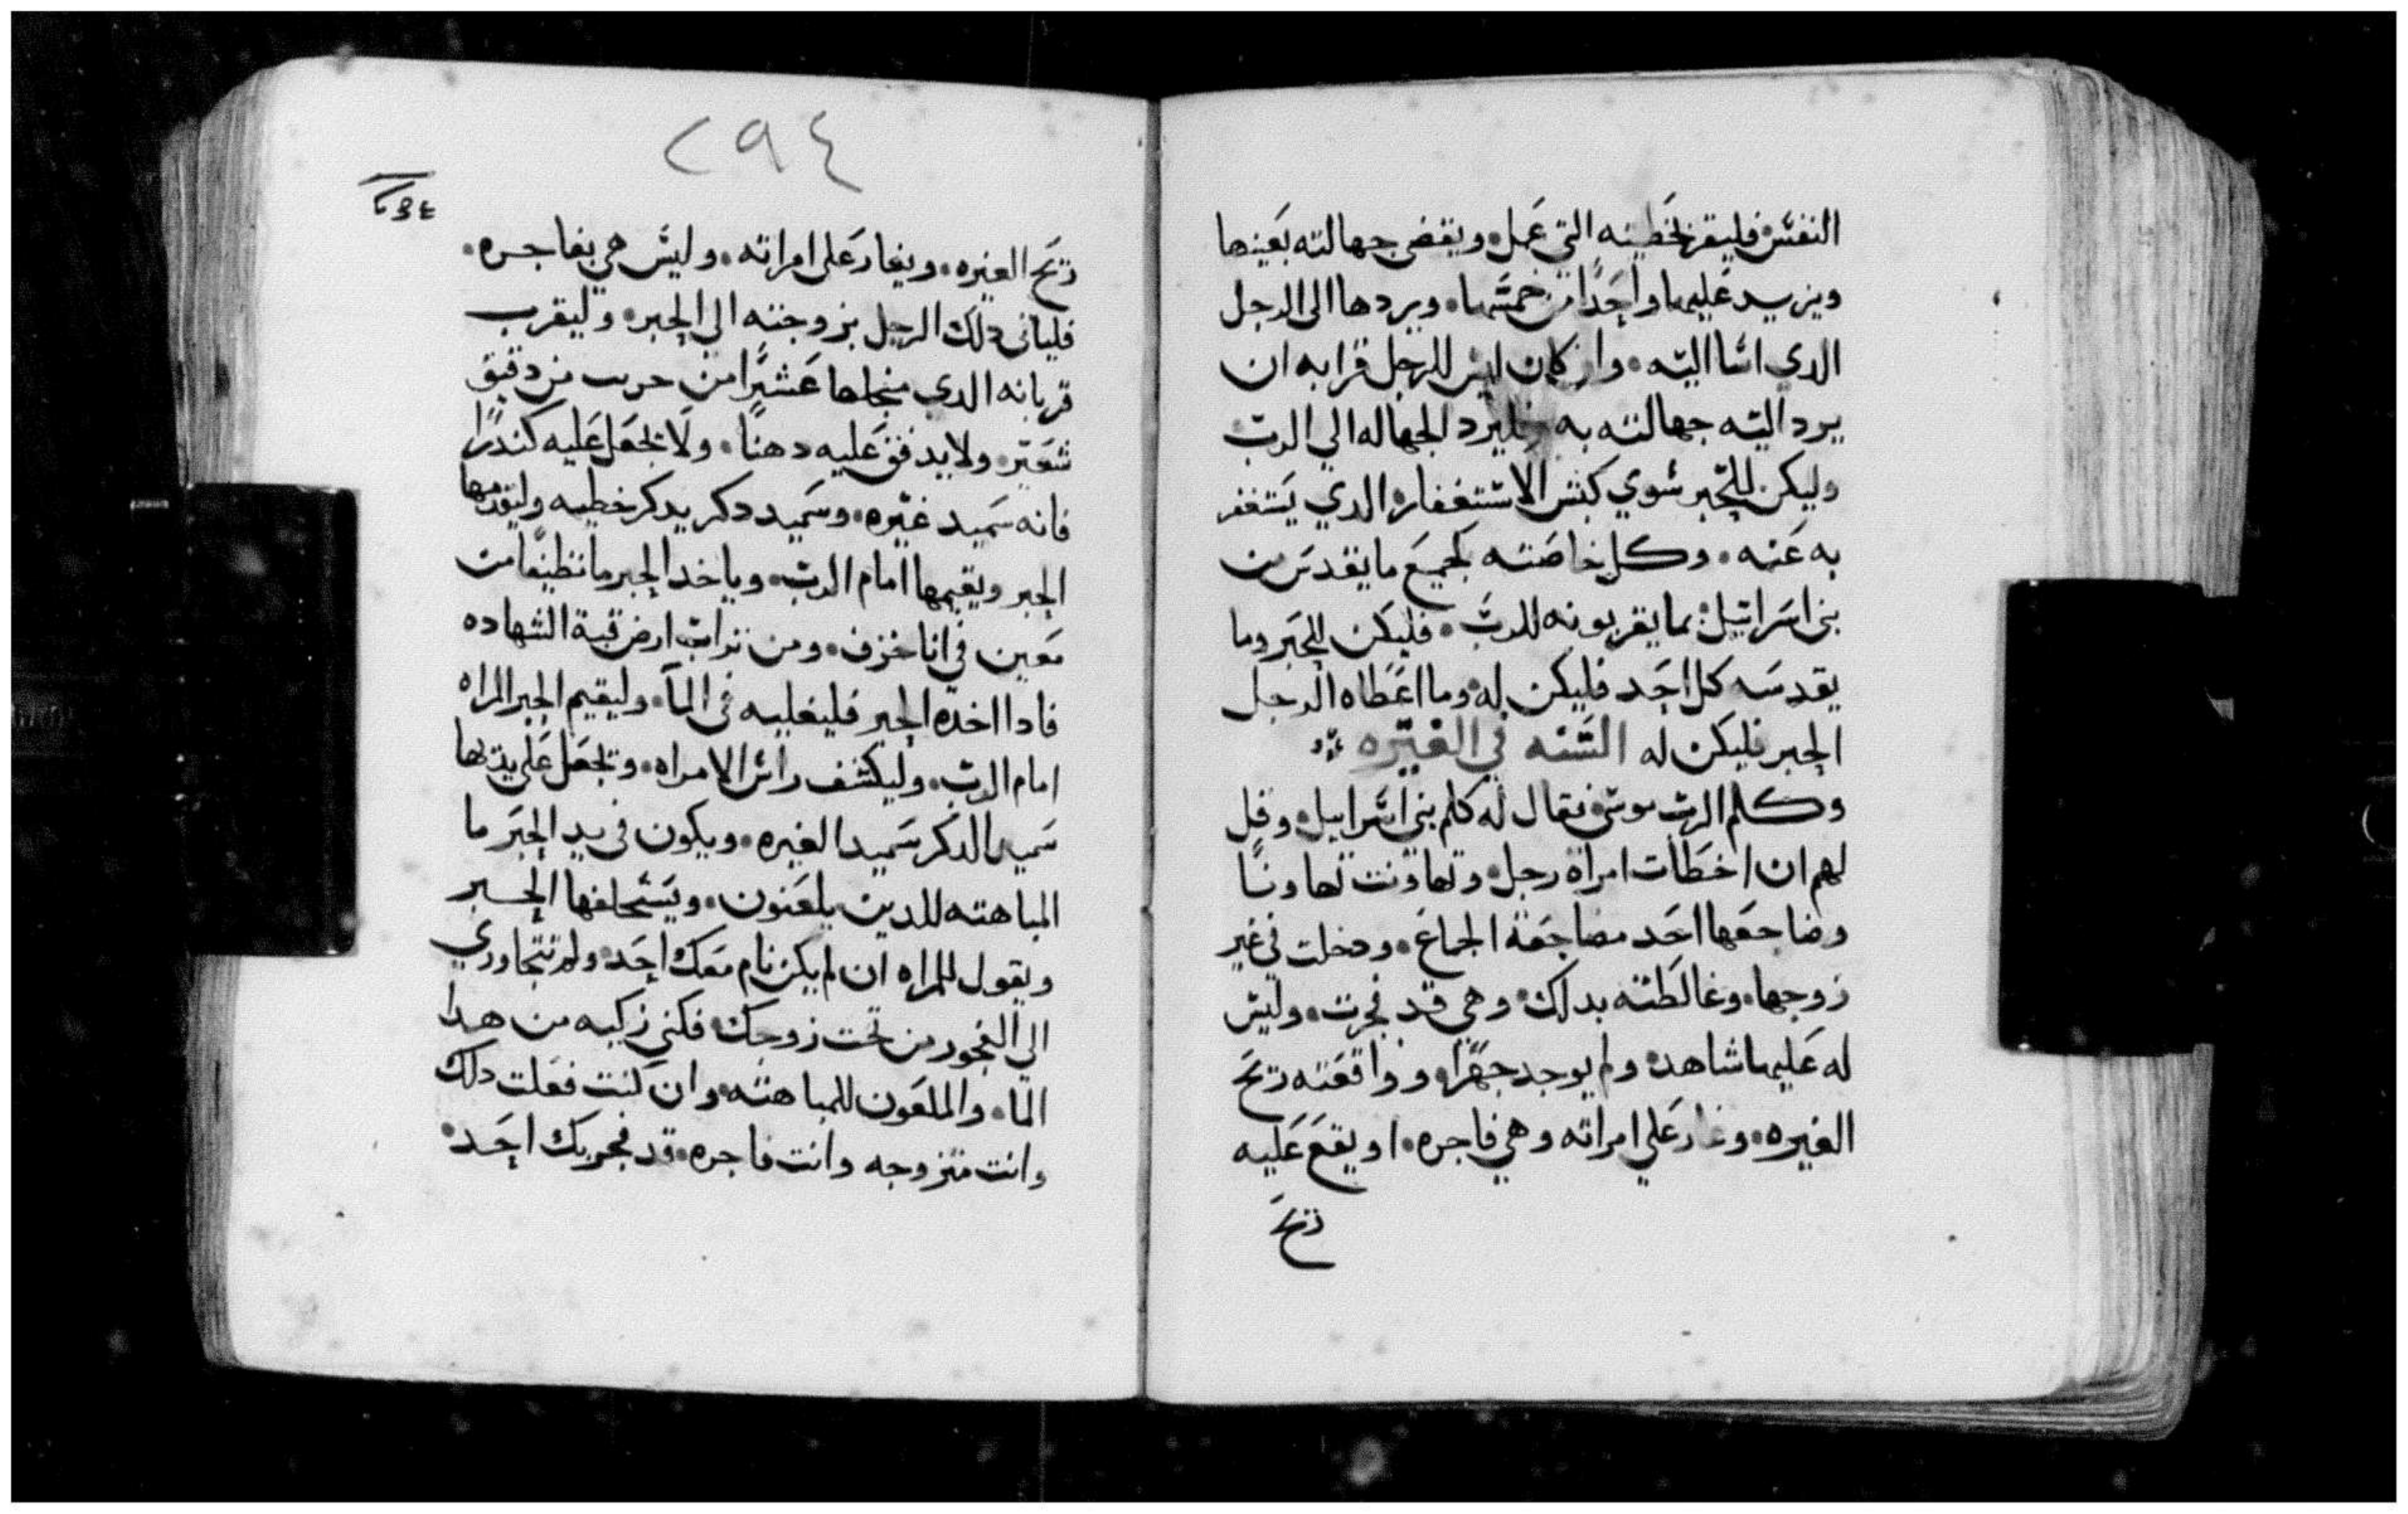 النفس فليقر بخطيته التي عمل ويقضي جهالته بعينها
ويزيد عليها واحدًا من خمسها. ويردها الى الرجل
الدي اسا اليه. وان كان ليس للرجل قرابه ان
يرد اليه جهالته به فليرد الجهاله الي الرب
وليكن للحبر سوي كبش الاستغفار الدي يستغفر
به عنه. وكل خاصته لجميع ما يقدس من
بني اسراييل: بما يقربونه للرب. فليكن للحبر وما
يقدسه كل احد فليكن له وما اعطاه الرجل
الحبر فليكن له السنه في الغيره
وكلم الرب موسي فقال له كلم بني اسراييل وقل
لهم ان اخطات امراة رجل وتهاونت تهاونًا
وضاجعها احد مضاجعة الجماع. ودخلت في غير
زوجها. وغالطته بدلك وهي قد فجرت. وليس
له عليها شاهد ولم يوجد جهرًا وواقعته ريح
الغيره. وغار علي امراته وهي فاجره. او يقع عليه
ريح
٢٩٤
ريح الغيره. ويغار على امراته. وليس هي بفاجره.
فلياتى دلك الرجل بزوجته الي الحبر. وليقرب
قربانه الدي من عشيرًا من حريب من دقيق
شعير ولا يدفق عليه دهنًا. ولا يجعل عليه كندرًا
فانه سميد غيره. وسميد دكر يدكر خطيه وليقدمها
الحبر ويقيمها امام الرب. وياخد الحبر ما نظيفًا من
معين في انا خزف. ومن تراب ارض قبة الشهاده
فادا اخده الحبر فليغليه في الما. وليقيم الحبر المراه
امام الرب. وليكشف راس الامراه. ويجعل على يديها
سميد الدكر سميد الغيره. ويكون في يد الحبر ما
المباهته للدين يلعنون. ويستحلفها الحبر
ويقول للمراه ان لم يكن نام معك احد ولم تتجاوزي
الي الفجور من تحت زوجك فكني زكيه من هدا
الما. والملعون للمباهته. وان كنت فعلت دلك
وانت متزوجه وانت فاجره. قد فجر بك احد.